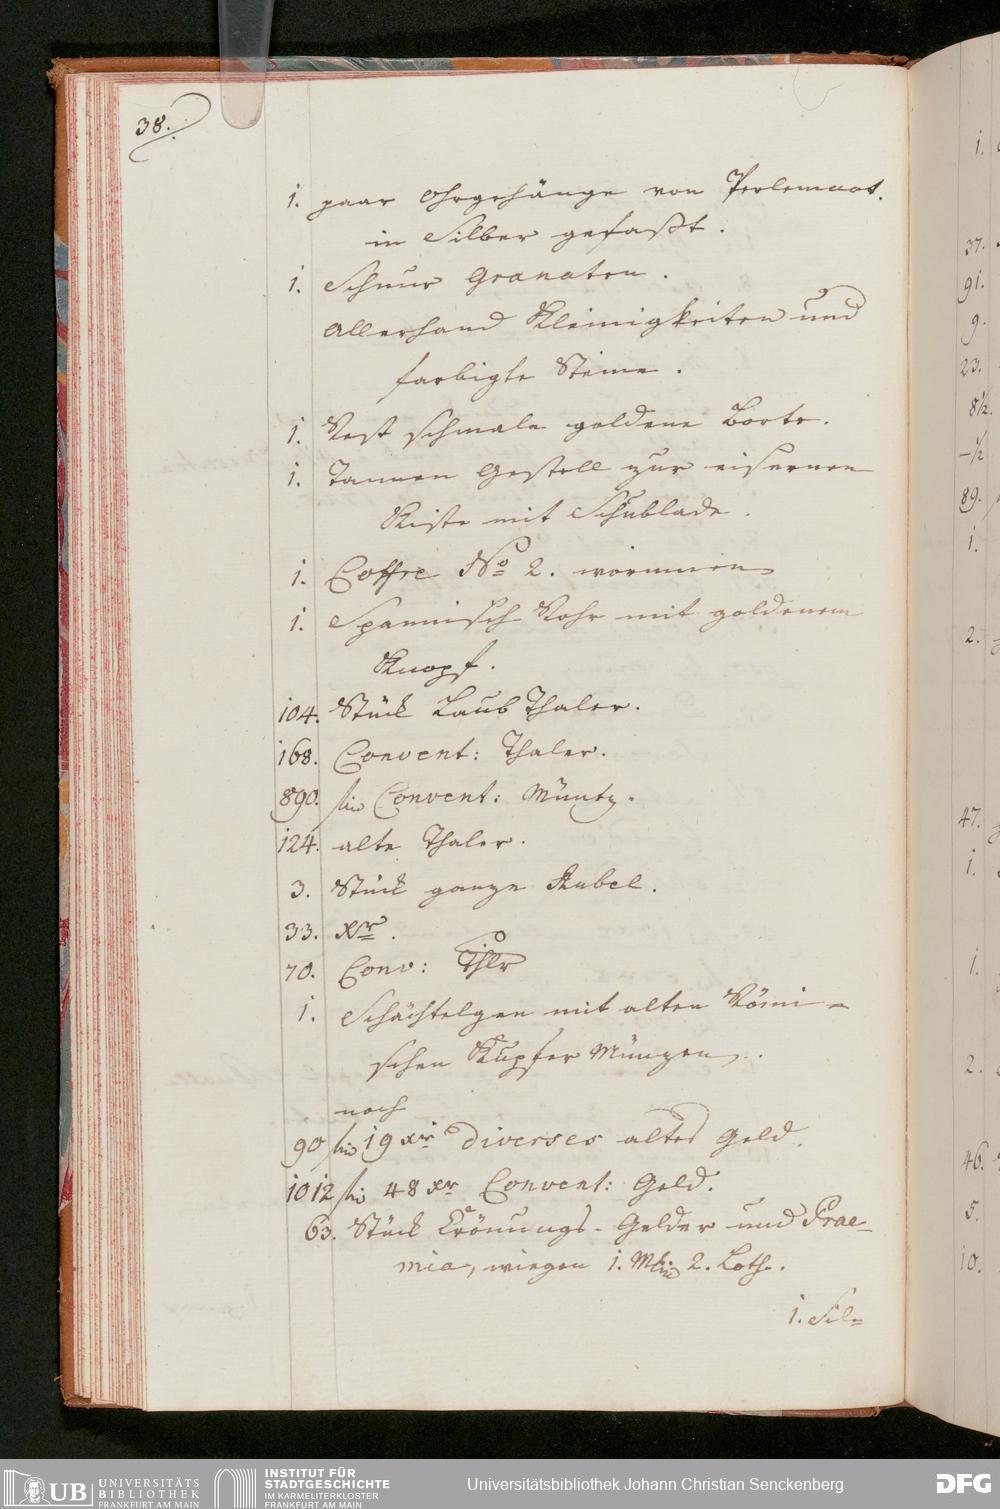 38.
1. paar Ohrgehänge von Perlemaat.
in Silber gefaßt.
1. Schnur Granaten.
Allerhand Kleinigkeiten und
farbigte Steine.
1. Rest schmale goldene Borte.
1. Tannen Gestell zur eisernen
Kiste mit Schublade.
1. Coffre No 2. worinnen
1. Spannisch Rohr mit goldenem
Knopf.
104. Stück Laub Thaler.
168. Convent: Thaler.
890. fl in Convent: Müntz.
124. alte Thaler.
3. Stück ganze Rubel.
33. Xr.
70. Conv: Thlr
1. Schächtelgen mit alten Römi-
schen Kupfer Münzen.
noch
90 fl 19 xr diverses altes Geld.
1012 fl 48 xr Convent: Geld.
63. Stück Krönungs-Gelder und Prae-
mia, wiegen 1. 2. Loth.
1. Sil=
1.
37.
91.
9.
23.
8½.
-½
89.
1.
2.
47.
1.
1.
2.
46.
5.
10.
UB UNIVERSITÄTS
BIBLIOTHEK
FRANKFURT AM MAIN
INSTITUT FÜR
STADTGESCHICHTE
IM KARMELITERKLOSTER
FRANKFURT AM MAIN
Universitätsbibliothek Johann Christian Senckenberg
DFG